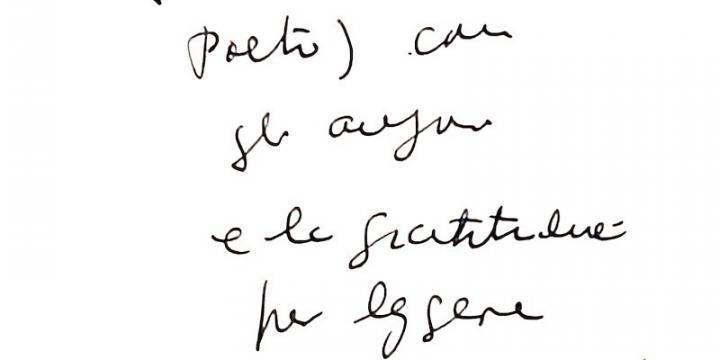 poeti) con
gli auguri
e la gratitudine
per leggere